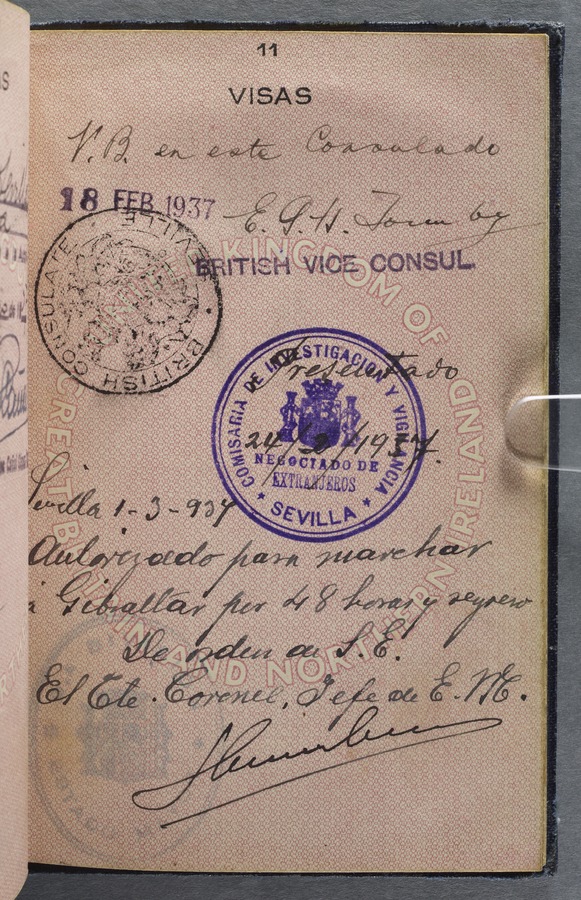 11
VISAS
V.B. en este Consulado
18 FEB 1937
E. G. H.
BRITISH VICE CONSUL.
BRITISH CONSULATE SEVILLE
UNITED KINGDOM OF GREAT BRITAIN AND NORTHERN IRELAND
COMISARIA DE INVESTIGACION Y VIGILANCIA
Presentado
24/2/1937.
NEGOCIADO DE
EXTRANJEROS
★ SEVILLA ★
Sevilla 1-3-937
Autorizado para marchar
a Gibraltar por 48 horas y regreso
De orden de S.E.
El Cte. Coronel, Jefe de E.M.